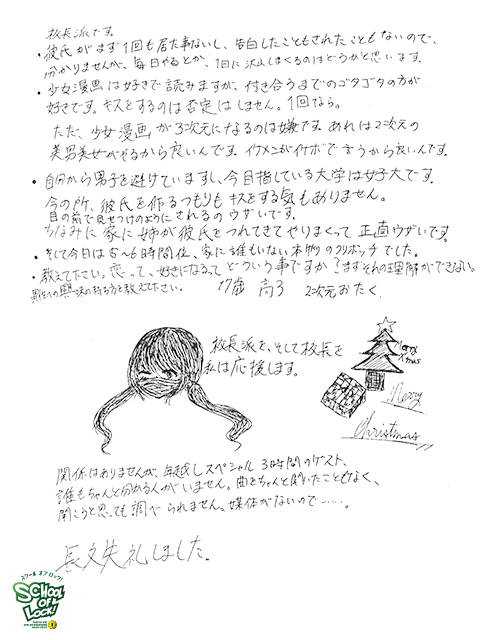 校長派です。
・彼氏がまず1回も居た事ないし、告白したこともされたこともないので、
分かりませんが、毎日やるとか、1日に沢山しまくるのはどうかと思います。
・少女漫画は好きで読みますが、付き合うまでのゴタゴタの方が
好きです。キスをするのは否定はしません。1回なら。
ただ、少女漫画が3次元になるのは嫌です。あれは2次元の
美男美女がやるから良いんです。イケメンがイケボで言うから良いんです。
・自分から男子を避けていますし、今目指している大学は女子大です。
今の所、彼氏を作るつもりもキスをする気もありません。
目の前で見せつけのようにされるのウザいです。
ちなみに家に姉が彼氏をつれてきてやりまくって正直ウザいです。
・そして今日は5〜6時間位、家に誰もいない本物のクリボッチでした。
・教えて下さい。恋って、好きになるってどういう事ですか?まずその理解ができない。
異性への興味の持ち方を教えて下さい。 17歳 高3 2次元おたく
校長派を、そして校長を
私は応援します。
Merry
Xmas
Merry
Christmas
関係はありませんが、年越しスペシャル3時間のゲスト、
誰もちゃんと分かる人がいません。曲をちゃんと聞いたことがなく、
聞こうと思っても調べられません。媒体がないので……。
長文失礼しました。
スクール オブ ロック!
SCHOOL
OF
LOCK!